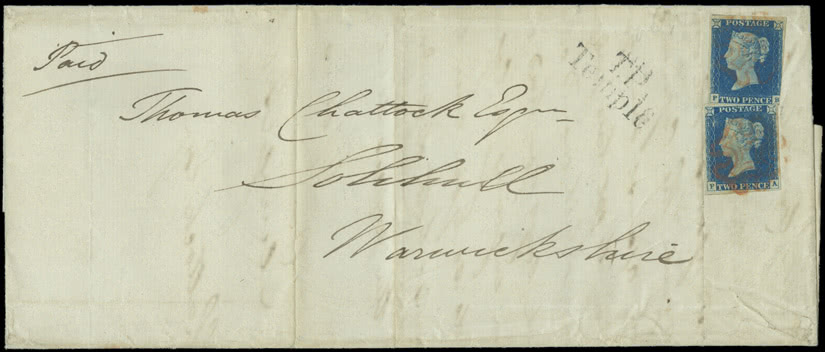 Paid
Thomas Chattock Esqre
Solihull
Warwickshire
TP
Temple
POSTAGE
TWO PENCE
POSTAGE
TWO PENCE